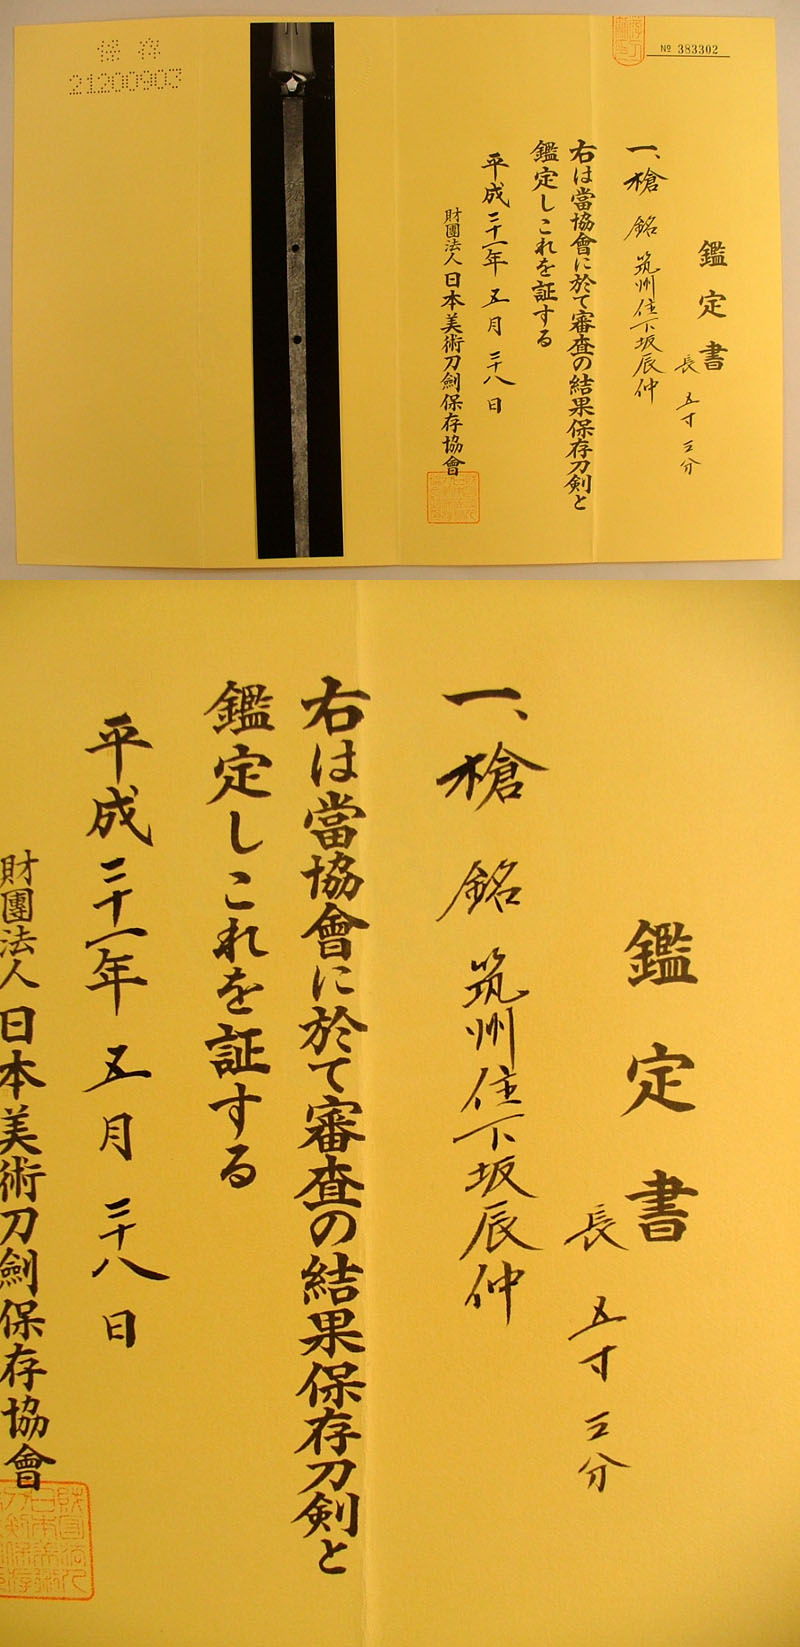 保存
21200903
№ 383302
鑑定書
長 五寸三分
一、槍 銘 筑州住下坂辰仲
右は當協會に於て審査の結果保存刀剣と
鑑定しこれを証する
平成二十一年 五月 二十八日
財團法人 日本美術刀劍保存協會
鑑定書
長 五寸三分
一、槍 銘 筑州住下坂辰仲
右は當協會に於て審査の結果保存刀剣と
鑑定しこれを証する
平成二十一年 五月 二十八日
財團法人 日本美術刀劍保存協會